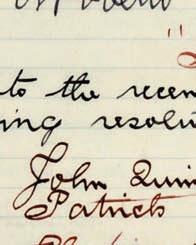 to the recen
ing resolu
John Quin
Patrick